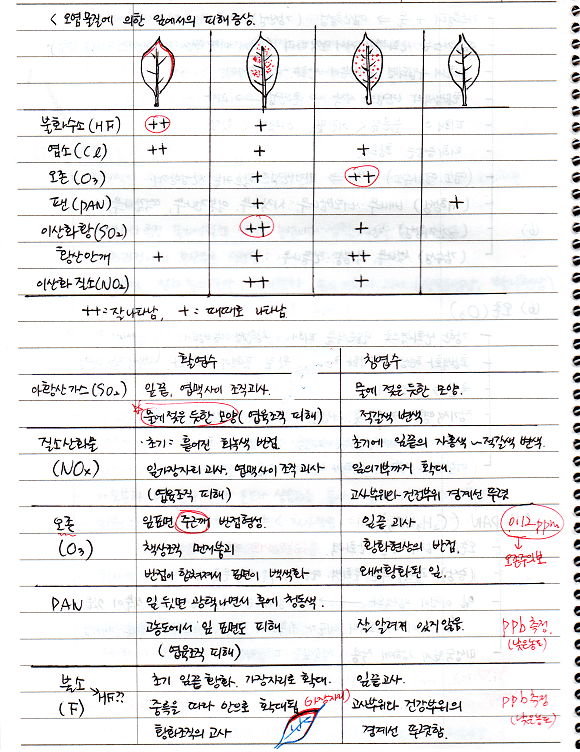 < 오염물질에 의한 잎에서의 피해증상.
불화수소(HF) ++ +
염소(Cl) ++ + +
오존(O3) + ++
팬(PAN) + +
이산화황(SO2) ++ +
황산안개 + + ++
이산화질소(NO2) ++ +
++ = 잘나타남, + = 때때로 나타남
활엽수 침엽수
아황산가스(SO2) 잎끝, 엽맥사이 조직괴사. 물에 젖은 듯한 모양.
물에 젖은 듯한 모양(엽육조직 피해) 적갈색 변색
질소산화물 · 초기 = 흩어진 회녹색 반점. 초기에 잎끝의 자홍색 ~ 적갈색 변색.
(NOx) 잎가장자리 괴사. 엽맥사이 조직 괴사 잎의기부까지 확대.
(엽육조직 피해) 고사부위와 건전부위 경계선 뚜렷
오존 잎표면 주근깨 반점형성. 잎끝 괴사 0.12 ppm
(O3) 책상조직 먼저붕괴 황화현상의 반점. 오존주의보
반점이 합쳐져서 표면이 백색화 왜성황화된 잎.
PAN 잎 뒷면 광택나면서 후에 청동색.
고농도에서 잎 표면도 피해 잘 알려져 있지 않음. ppb 측정
(엽육조직 피해) (낮은농도)
불소 HF?? 초기 잎끝 황화. 가장자리로 확대. 잎끝고사. ppb 측정
(F) 중륵을 따라 안으로 확대됨 가장자리 고사부위와 건강부위의 (낮은농도)
황화조직의 고사 경계선 뚜렷함.